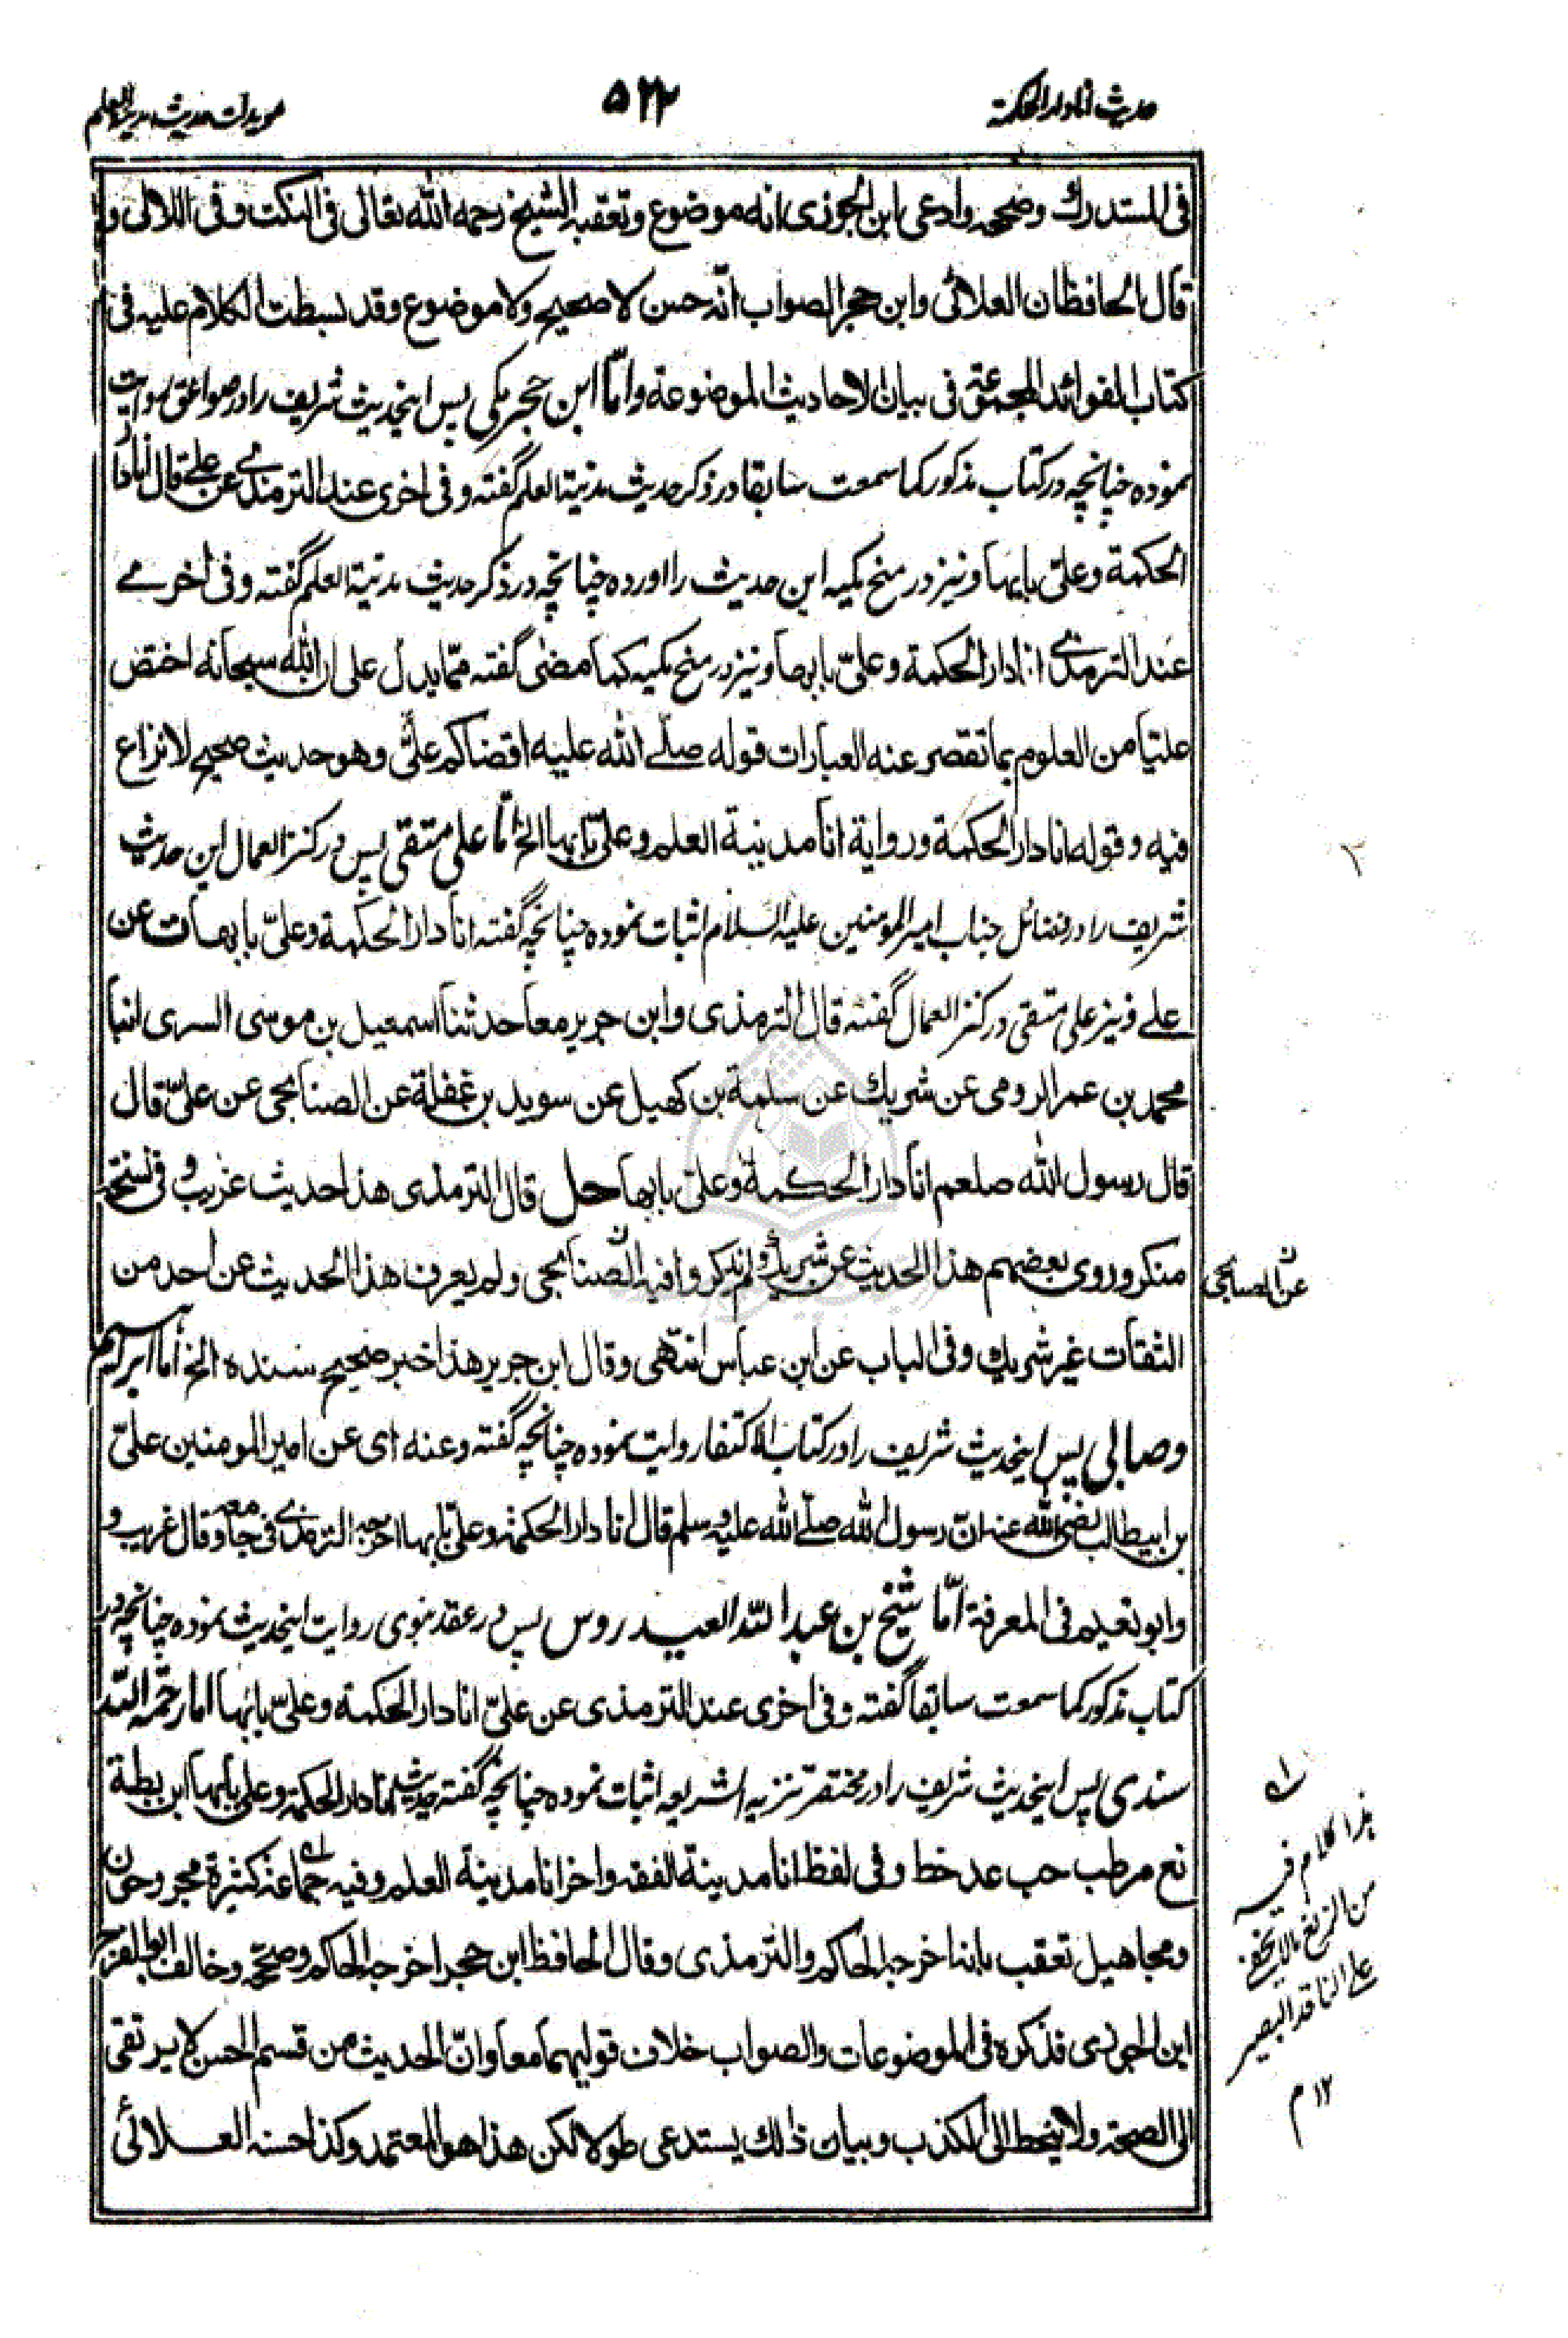 حدیث انا دار الحکمة
۵۲۲
مویدات حدیث مدینة العلم
فی المستدرك وصححه وادعی ابن الجوزی انه موضوع وتعقبه الشیخ رحمه الله تعالی فی النکت وفی اللالی و
قال الحافظان العلائی وابن حجر الصواب انّه حسن لا صحیح ولا موضوع وقد بسطت الکلام علیه فی
کتاب الفوائد المجموعة فی بیان الاحادیث الموضوعة وامّا ابن حجر مکی پس اینحدیث شریف را در صواعق روایت
نموده چنانچه در کتاب مذکور کما سمعت سابقا در ذکر حدیث مدینة العلم گفته وفی اخری عند الترمذی عن علی قال انا دار
الحکمة وعلیّ بابها و نیز در منح مکیه این حدیث را اورده چنانچه در ذکر حدیث مدینة العلم گفته وفی اخری
عند الترمذی انا دار الحکمة وعلیّ بابها و نیز در منح مکیه کما مضی گفته ممّا یدل علی ان الله سبحانه اختص
علیّا من العلوم بما تقصر عنه العبارات قوله صلّی الله علیه اقضاکم علیّ وهو حدیث صحیح لا نزاع
فیه وقوله انا دار الحکمة وروایة انا مدینة العلم وعلیّ بابها الخ امّا علی متقی پس در کنز العمال این حدیث
شریف را در فضائل جناب امیر المومنین علیه السلام اثبات نموده چنانچه گفته انا دار الحکمة وعلیّ بابها ت عن
علی و نیز علی متقی در کنز العمال گفته قال الترمذی وابن جریر معا حدثنا اسمعیل بن موسی السری انبا
محمد بن عمر الرومی عن شریك عن سلمة بن کهیل عن سوید بن غفلة عن الصنابحی عن علیّ قال
قال رسول الله صلعم انا دار الحکمة وعلیّ بابها حل قال الترمذی هذا حدیث غریب وفی نسخة
منکر وروی بعضهم هذا الحدیث عن شریك ولم یذکروا فیه الصنابحی ولم یعرف هذا الحدیث عن احد من
عن الصنابحی
الثقات غیر شریك وفی الباب عن ابن عباس انتهی وقال ابن جریر هذا خبر صحیح سنده الخ امّا ابراهیم
وصابی پس اینحدیث شریف را در کتاب الاکتفا روایت نموده چنانچه گفته وعنه ای عن امیر المومنین علیّ
بن ابیطالب رضی الله عنه انّ رسول الله صلّی الله علیه وسلم قال انا دار الحکمة وعلیّ بابها اخرجه الترمذی فی جامعه وقال غریب و
وابو نعیم فی المعرفة امّا شیخ بن عبد الله العیدروس پس در عقد نبوی روایت اینحدیث نموده چنانچه در
کتاب مذکور کما سمعت سابقا گفته وفی اخری عند الترمذی عن علیّ انا دار الحکمة وعلیّ بابها اما رحمة الله
سندی پس اینحدیث شریف را در مختصر تنزیه الشریعه اثبات نموده چنانچه گفته حدیث انا دار الحکمة وعلی بابها ابن بطة
نع مر طب حب عد خط وفی لفظ انا مدینة الفقه واخر انا مدینة العلم وفیه جماعة کثیرة مجروحون
ومجاهیل تعقب بانه اخرجه الحاکم والترمذی وقال الحافظ ابن حجر اخرجه الحاکم وصححه وخالف ابو الفرج
ابن الجوزی فذکره فی الموضوعات والصواب خلاف قولیهما معا وانّ الحدیث من قسم الحسن لا یرتقی
الی الصحة ولا ینحط الی الکذب وبیان ذلك یستدعی طولا لکن هذا هو المعتمد وکذا حسنه العلائی
هذا کلام فیه
من الزیغ ما لا یخفی
علی الناقد البصیر
۱۲ م